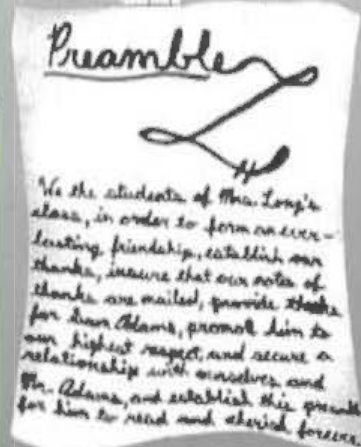 Preamble
We the students of Mrs. Long's
class, in order to form an ever-
lasting friendship, establish our
thanks, insure that our notes of
thanks are mailed, provide thanks
for Dean Adams, promote him to
our highest respect, and secure a
relationship with ourselves and
Mr. Adams, and establish this preamble
for him to read and cherish forever